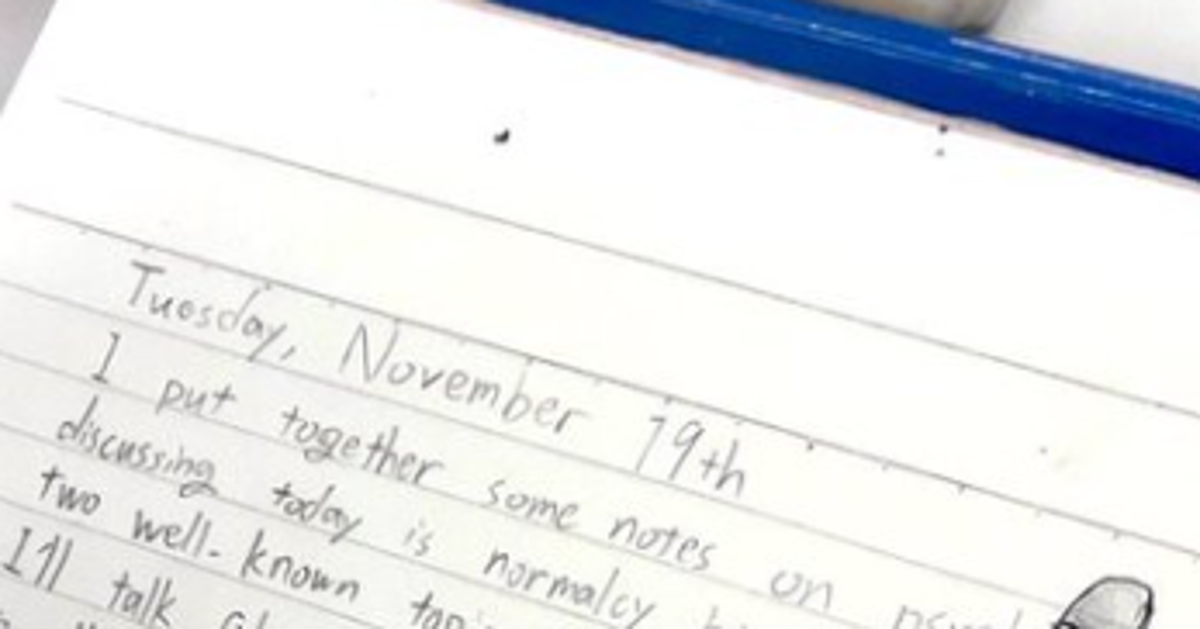 Tuesday, November 19th
I put together some notes on
discussing today is normalcy
two well-known
I'll talk